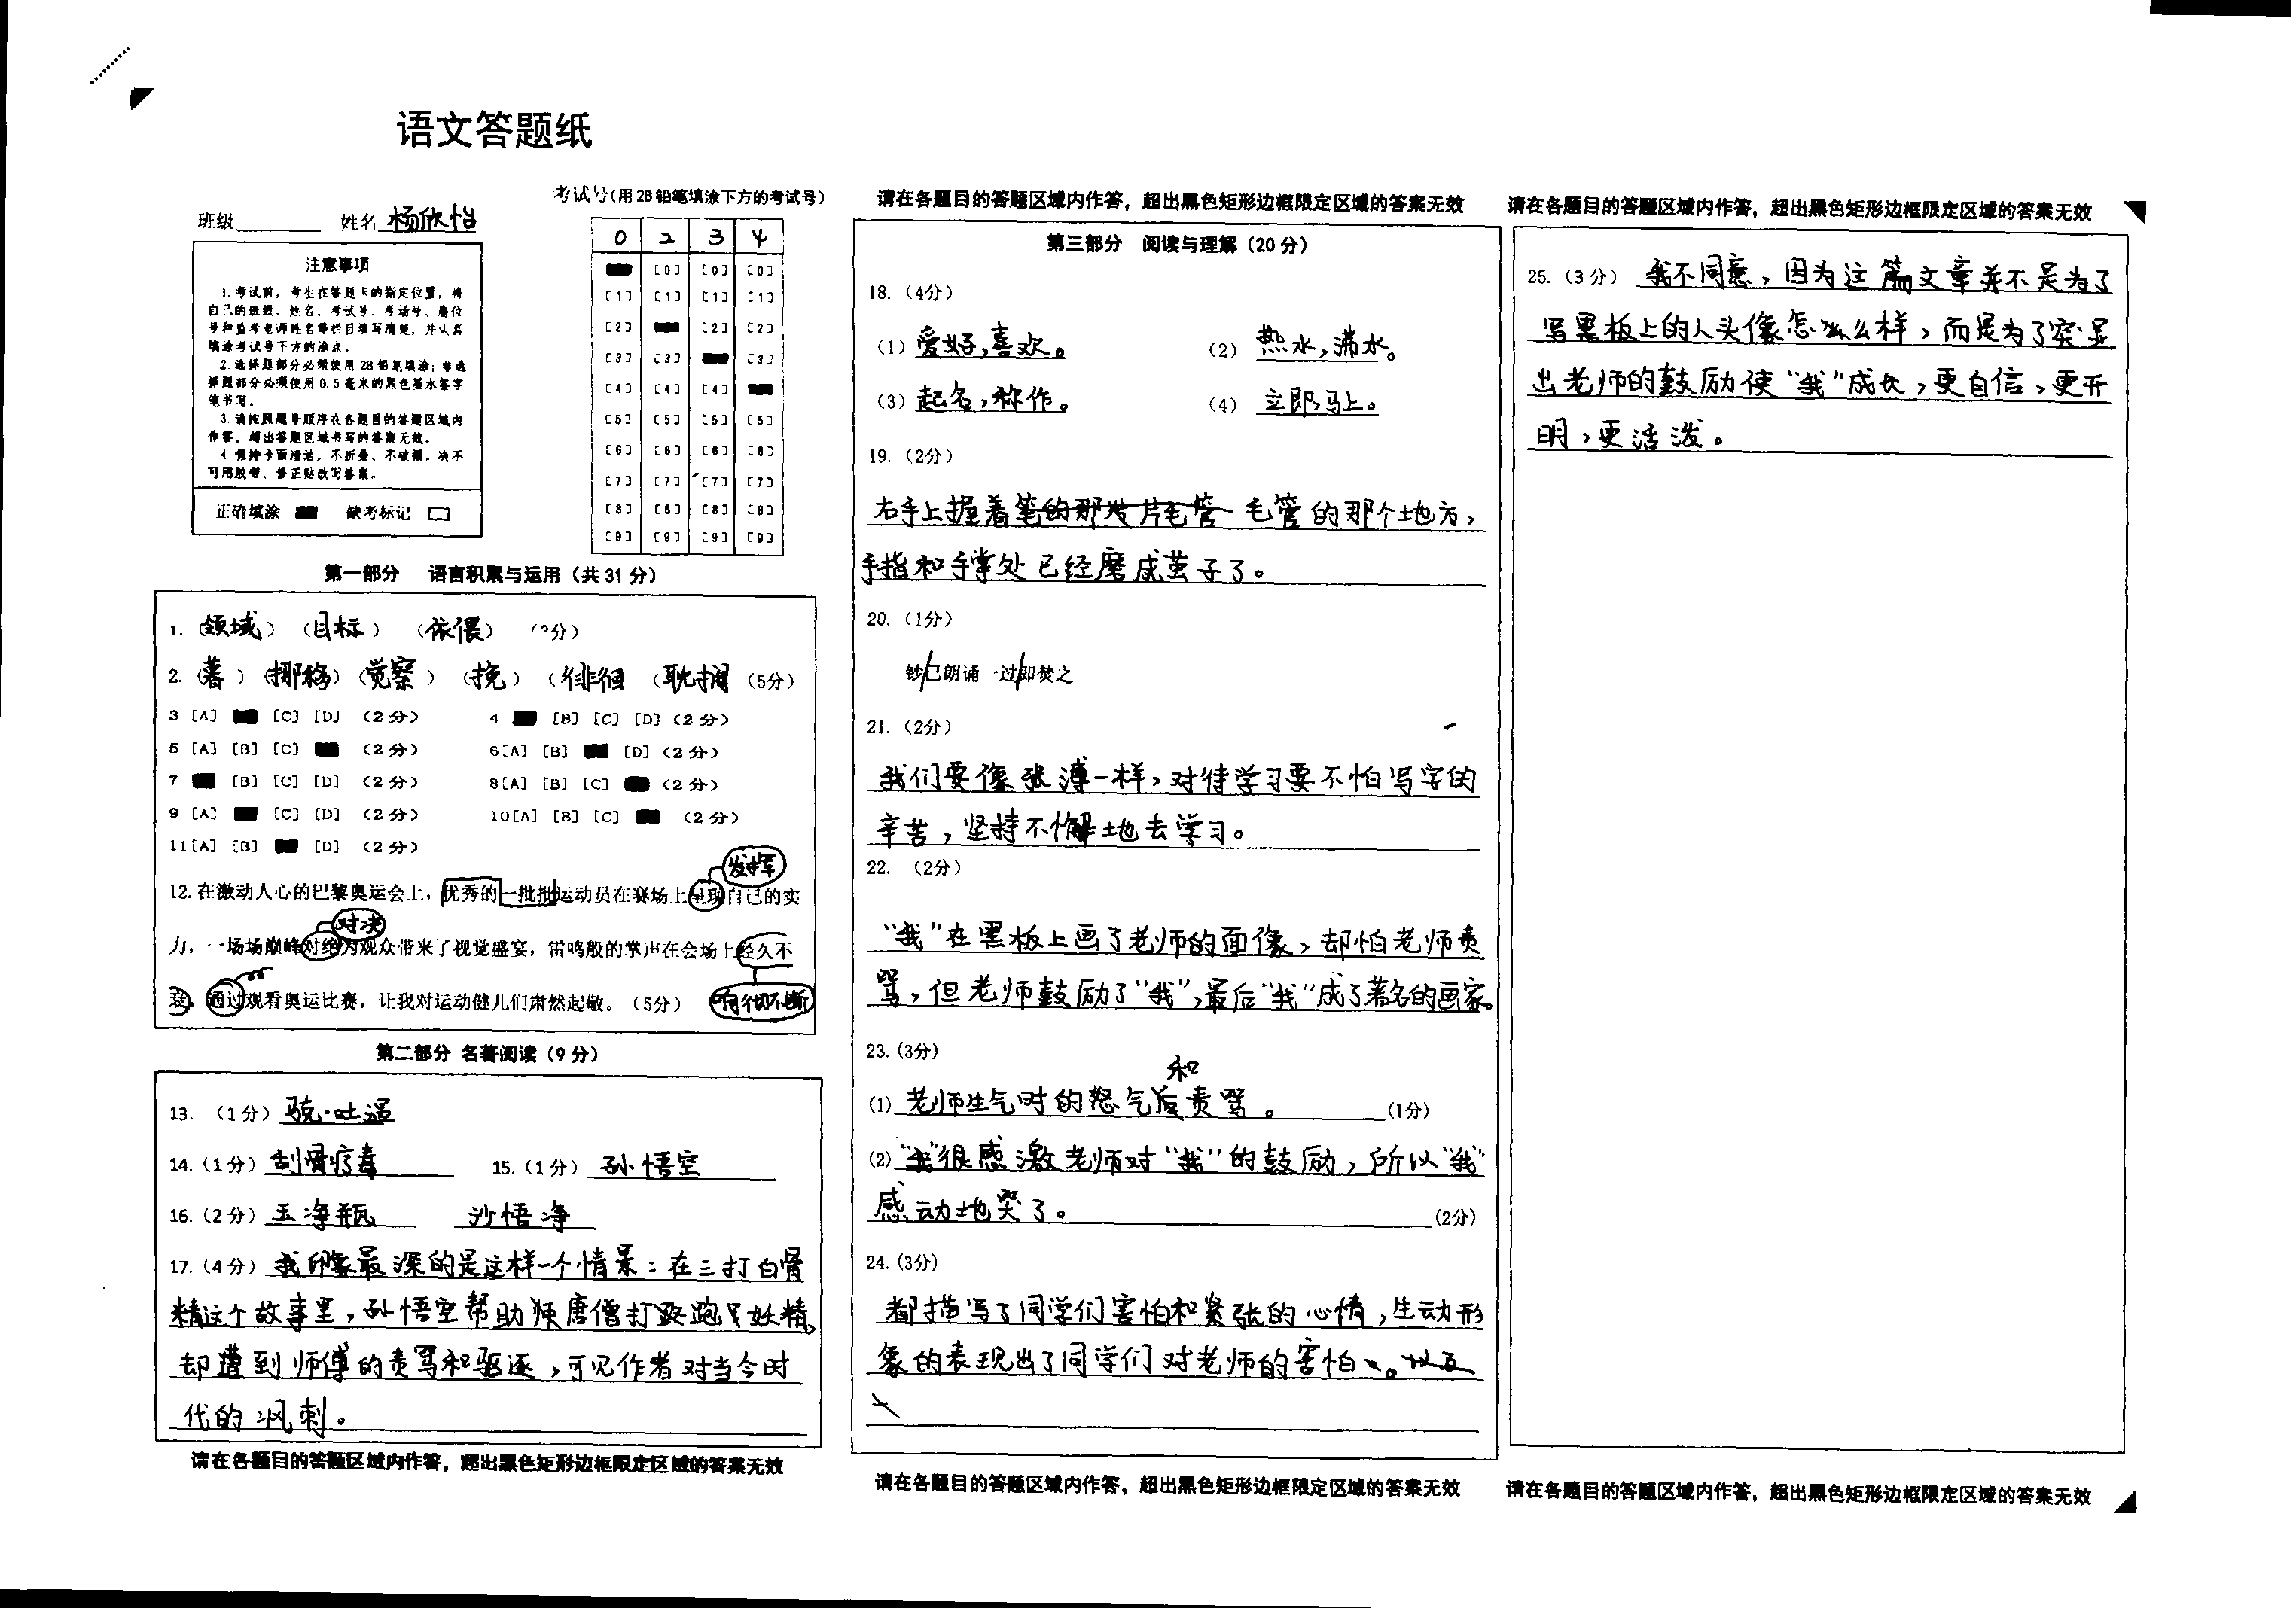 语文答题纸
班级 姓名 杨欣怡
考试号(用2B铅笔填涂下方的考试号)
0 2 3 4
[0] [0] [0]
[1] [1] [1] [1]
[2] [2] [2]
[3] [3] [3]
[4] [4] [4]
[5] [5] [5] [5]
[6] [6] [6] [6]
[7] [7] [7] [7]
[8] [8] [8] [8]
[9] [9] [9] [9]
注意事项
1.考试前，考生在答题卡的指定位置，将
自己的班级、姓名、考试号、考场号、座位
号和监考老师姓名等栏目填写清楚，并认真
填涂考试号下方的涂点。
2.选择题部分必须使用2B铅笔填涂；非选
择题部分必须使用0.5毫米的黑色墨水签字
笔书写。
3.请按照题号顺序在各题目的答题区域内
作答，超出答题区域书写的答案无效。
4 保持卡面清洁，不折叠、不破损。决不
可用胶带、修正贴改写答案。
正确填涂 缺考标记
第一部分 语言积累与运用（共31分）
1.（领域）（目标）（依偎）
2.（著）（挪移）（觉察）（挽）（徘徊（耽搁（5分）
3 [A] [C] [D] （2分） 4 [B] [C] [D]（2分）
5 [A] [B] [C] （2分） 6[A] [B] [D]（2分）
7 [B] [C] [D] （2分） 8[A] [B] [C] （2分）
9 [A] [C] [D] （2分） 10[A] [B] [C] （2分）
11[A] [B] [D] （2分）
发挥
12.在激动人心的巴黎奥运会上，优秀的一批批运动员在赛场上呈现自己的实
对决
力，一场场巅峰对绝为观众带来了视觉盛宴，雷鸣般的掌声在会场上经久不
衰。通过观看奥运比赛，让我对运动健儿们肃然起敬。（5分） 响彻不断
第二部分 名著阅读（9分）
13.（1分）骁·吐温
14.（1分）刮骨疗毒 15.（1分）孙悟空
16.（2分）玉净瓶 沙悟净
17.（4分）我印象最深的是这样一个情景：在三打白骨
精这个故事里，孙悟空帮助唐僧打跑妖精，
却遭到师傅的责骂和驱逐，可见作者对当今时
代的讽刺。
请在各题目的答题区域内作答，超出黑色矩形边框限定区域的答案无效
请在各题目的答题区域内作答，超出黑色矩形边框限定区域的答案无效
第三部分 阅读与理解（20分）
18.（4分）
（1）爱好，喜欢。 （2）热水，沸水。
（3）起名，称作。 （4）立即，马上。
19.（2分）
右手上握着笔的那片毛管 毛管的那个地方，
手指和手掌处已经磨成茧子了。
20.（1分）
钞/已朗诵一过/即焚之
21.（2分）
我们要像张溥一样，对待学习要不怕写字的
辛苦，坚持不懈地去学习。
22.（2分）
“我”在黑板上画了老师的面像，却怕老师责
骂，但老师鼓励了“我”，最后“我”成了著名的画家。
23.(3分)
和
(1)老师生气时的怒气责骂。(1分)
(2)“我”很感激老师对“我”的鼓励，所以“我”
感动地哭了。(2分)
24.(3分)
都描写了同学们害怕和紧张的心情，生动形
象的表现出了同学们对老师的害怕。
请在各题目的答题区域内作答，超出黑色矩形边框限定区域的答案无效
请在各题目的答题区域内作答，超出黑色矩形边框限定区域的答案无效
25.（3分）我不同意，因为这篇文章并不是为了
写黑板上的人头像怎么样，而是为了突显
出老师的鼓励使“我”成长，更自信，更开
明，更活泼。
请在各题目的答题区域内作答，超出黑色矩形边框限定区域的答案无效